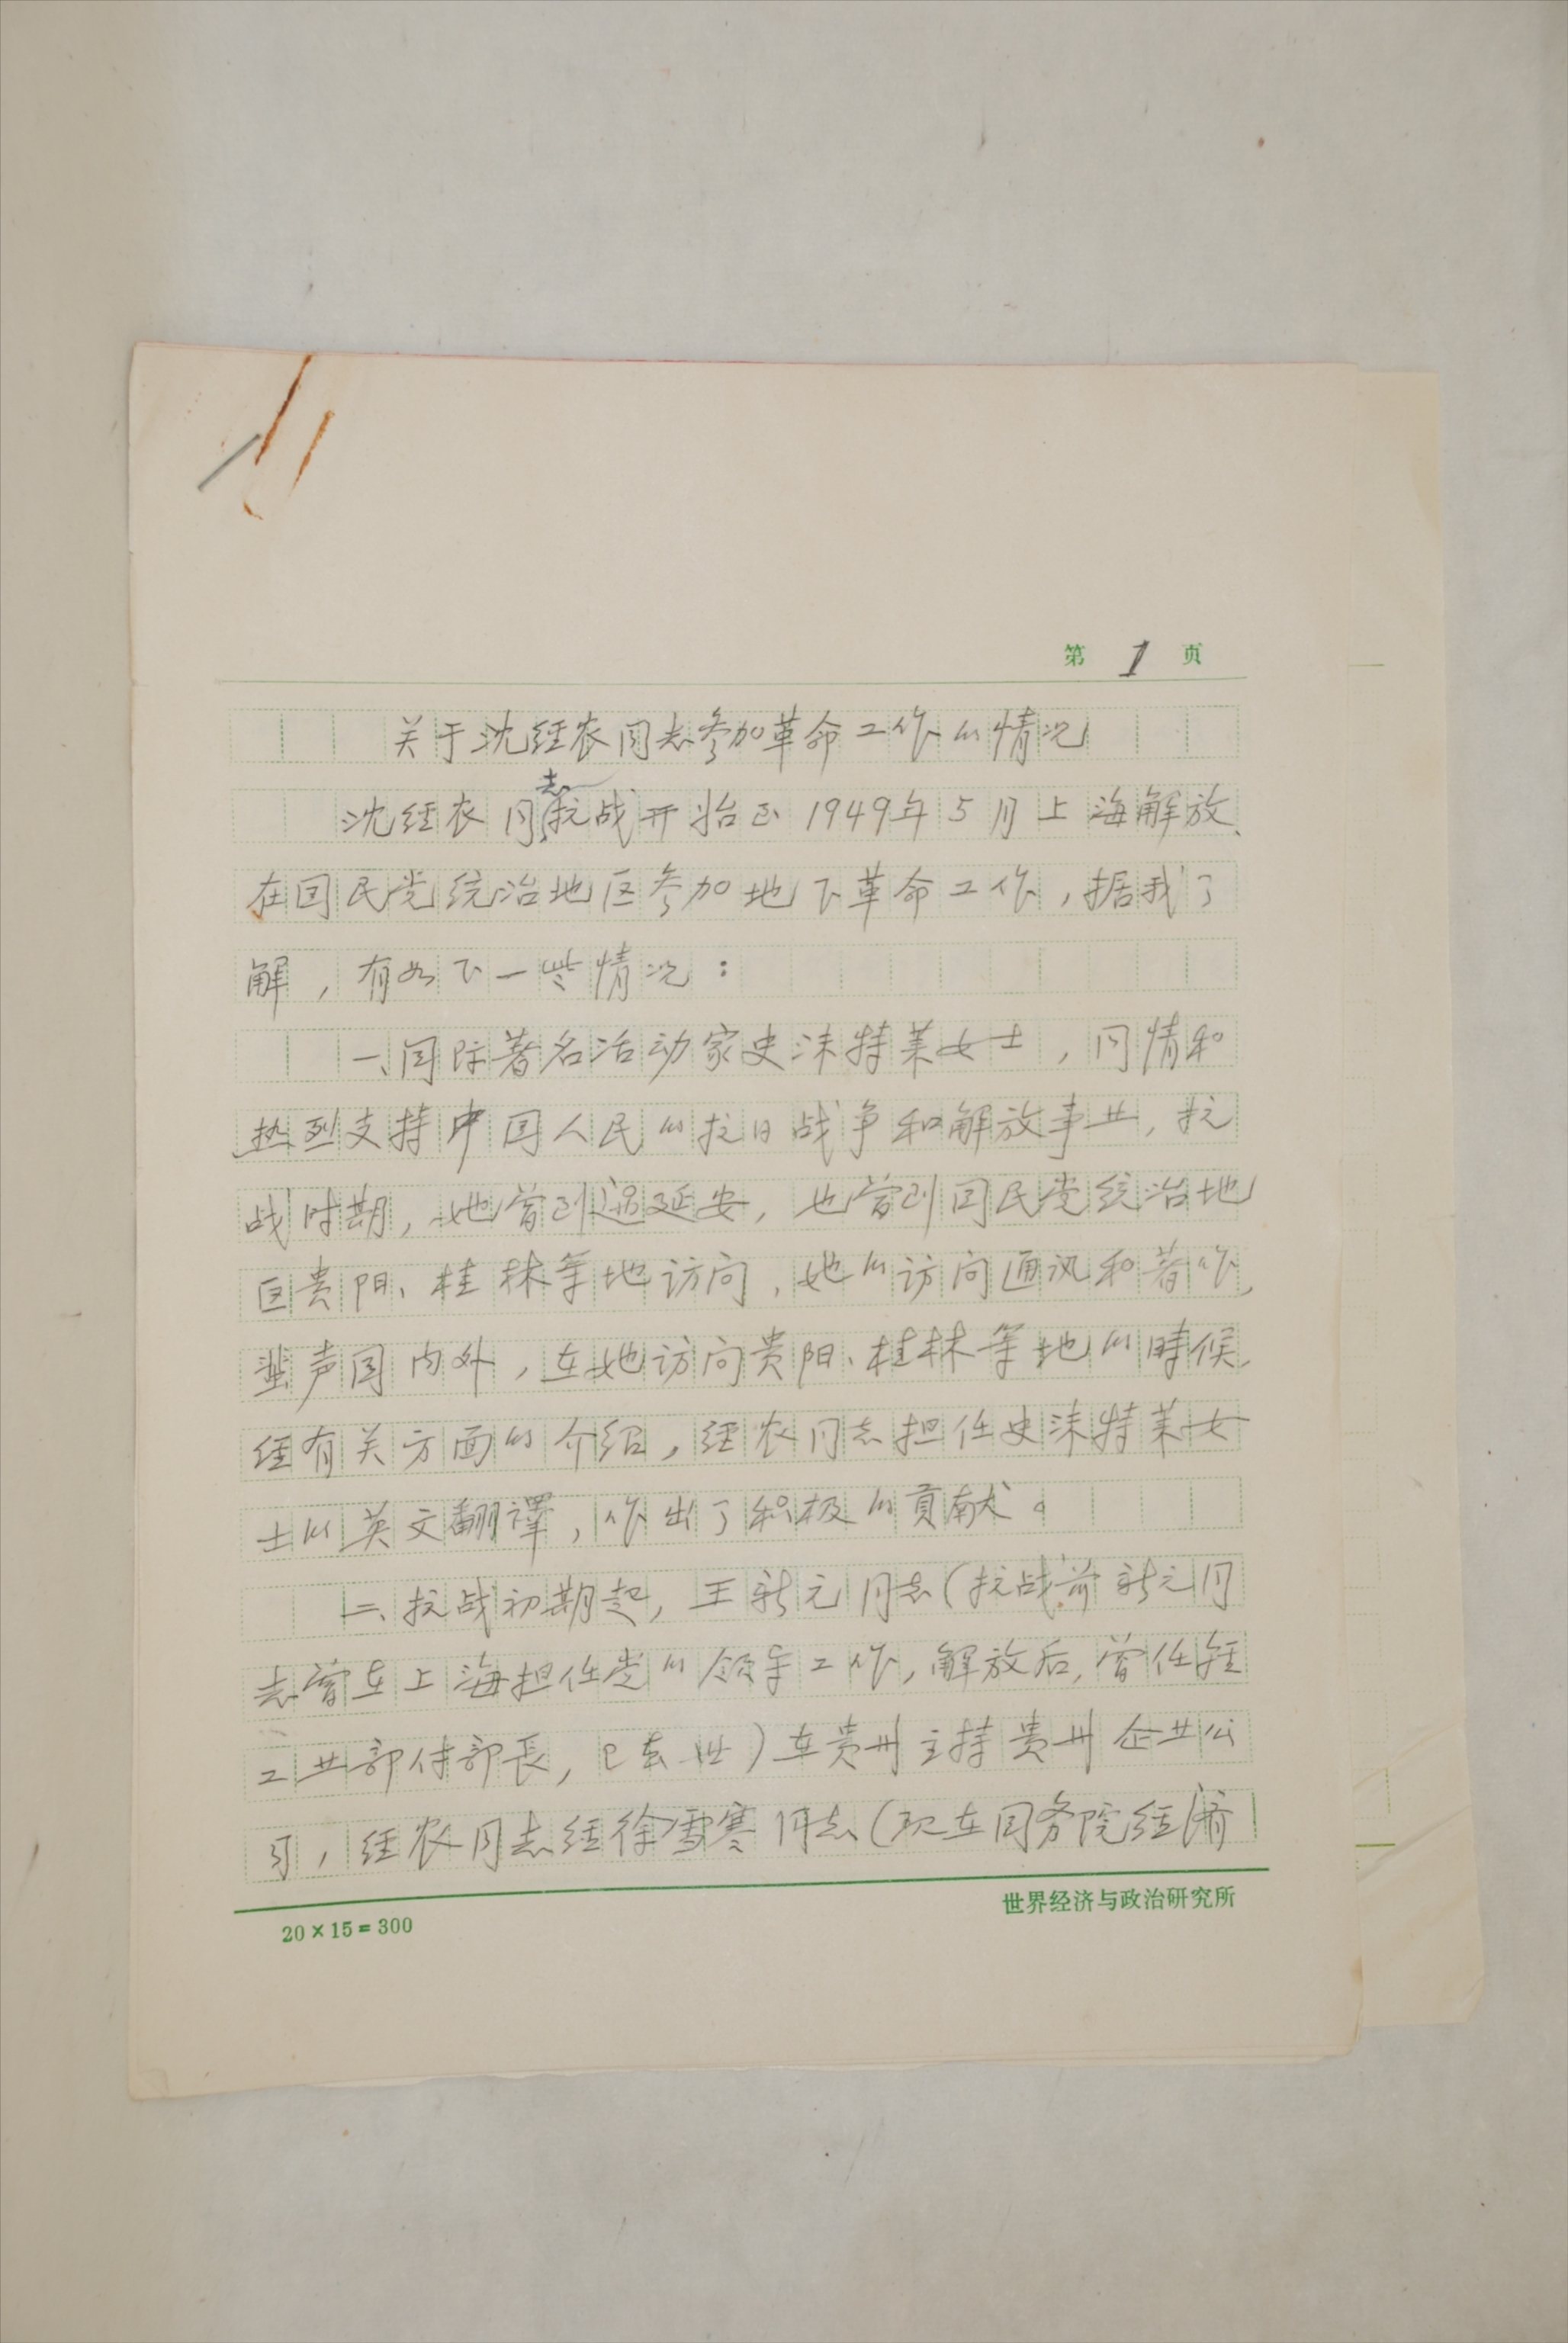 第 1 页
关于沈经农同志参加革命工作的情况
沈经农同志抗战开始至1949年5月上海解放、
在国民党统治地区参加地下革命工作，据我了
解，有如下一些情况：
一、国际著名活动家史沫特莱女士，同情和
热烈支持中国人民的抗日战争和解放事业，抗
战时期，她曾到过延安，也曾到国民党统治地
区贵阳、桂林等地访问，她的访问通讯和著作，
蜚声国内外，在她访问贵阳、桂林等地的時候，
经有关方面的介绍，经农同志担任史沫特莱女
士的英文翻譯，作出了积极的貢献。
二、抗战初期起，王新元同志（抗战前新元同
志曾在上海担任党的领导工作，解放后，曾任轻
工业部付部長，已去世）在贵州主持贵州企业公
司，经农同志经徐雪寒同志（现在国务院经濟
20×15=300
世界经济与政治研究所